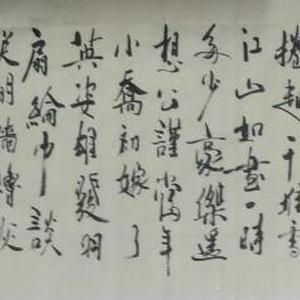 捲起千堆雪
江山如畫一時
多少豪傑遙
想公謹當年
小喬初嫁了
英姿雄發羽
扇綸巾談
笑間檣櫓灰